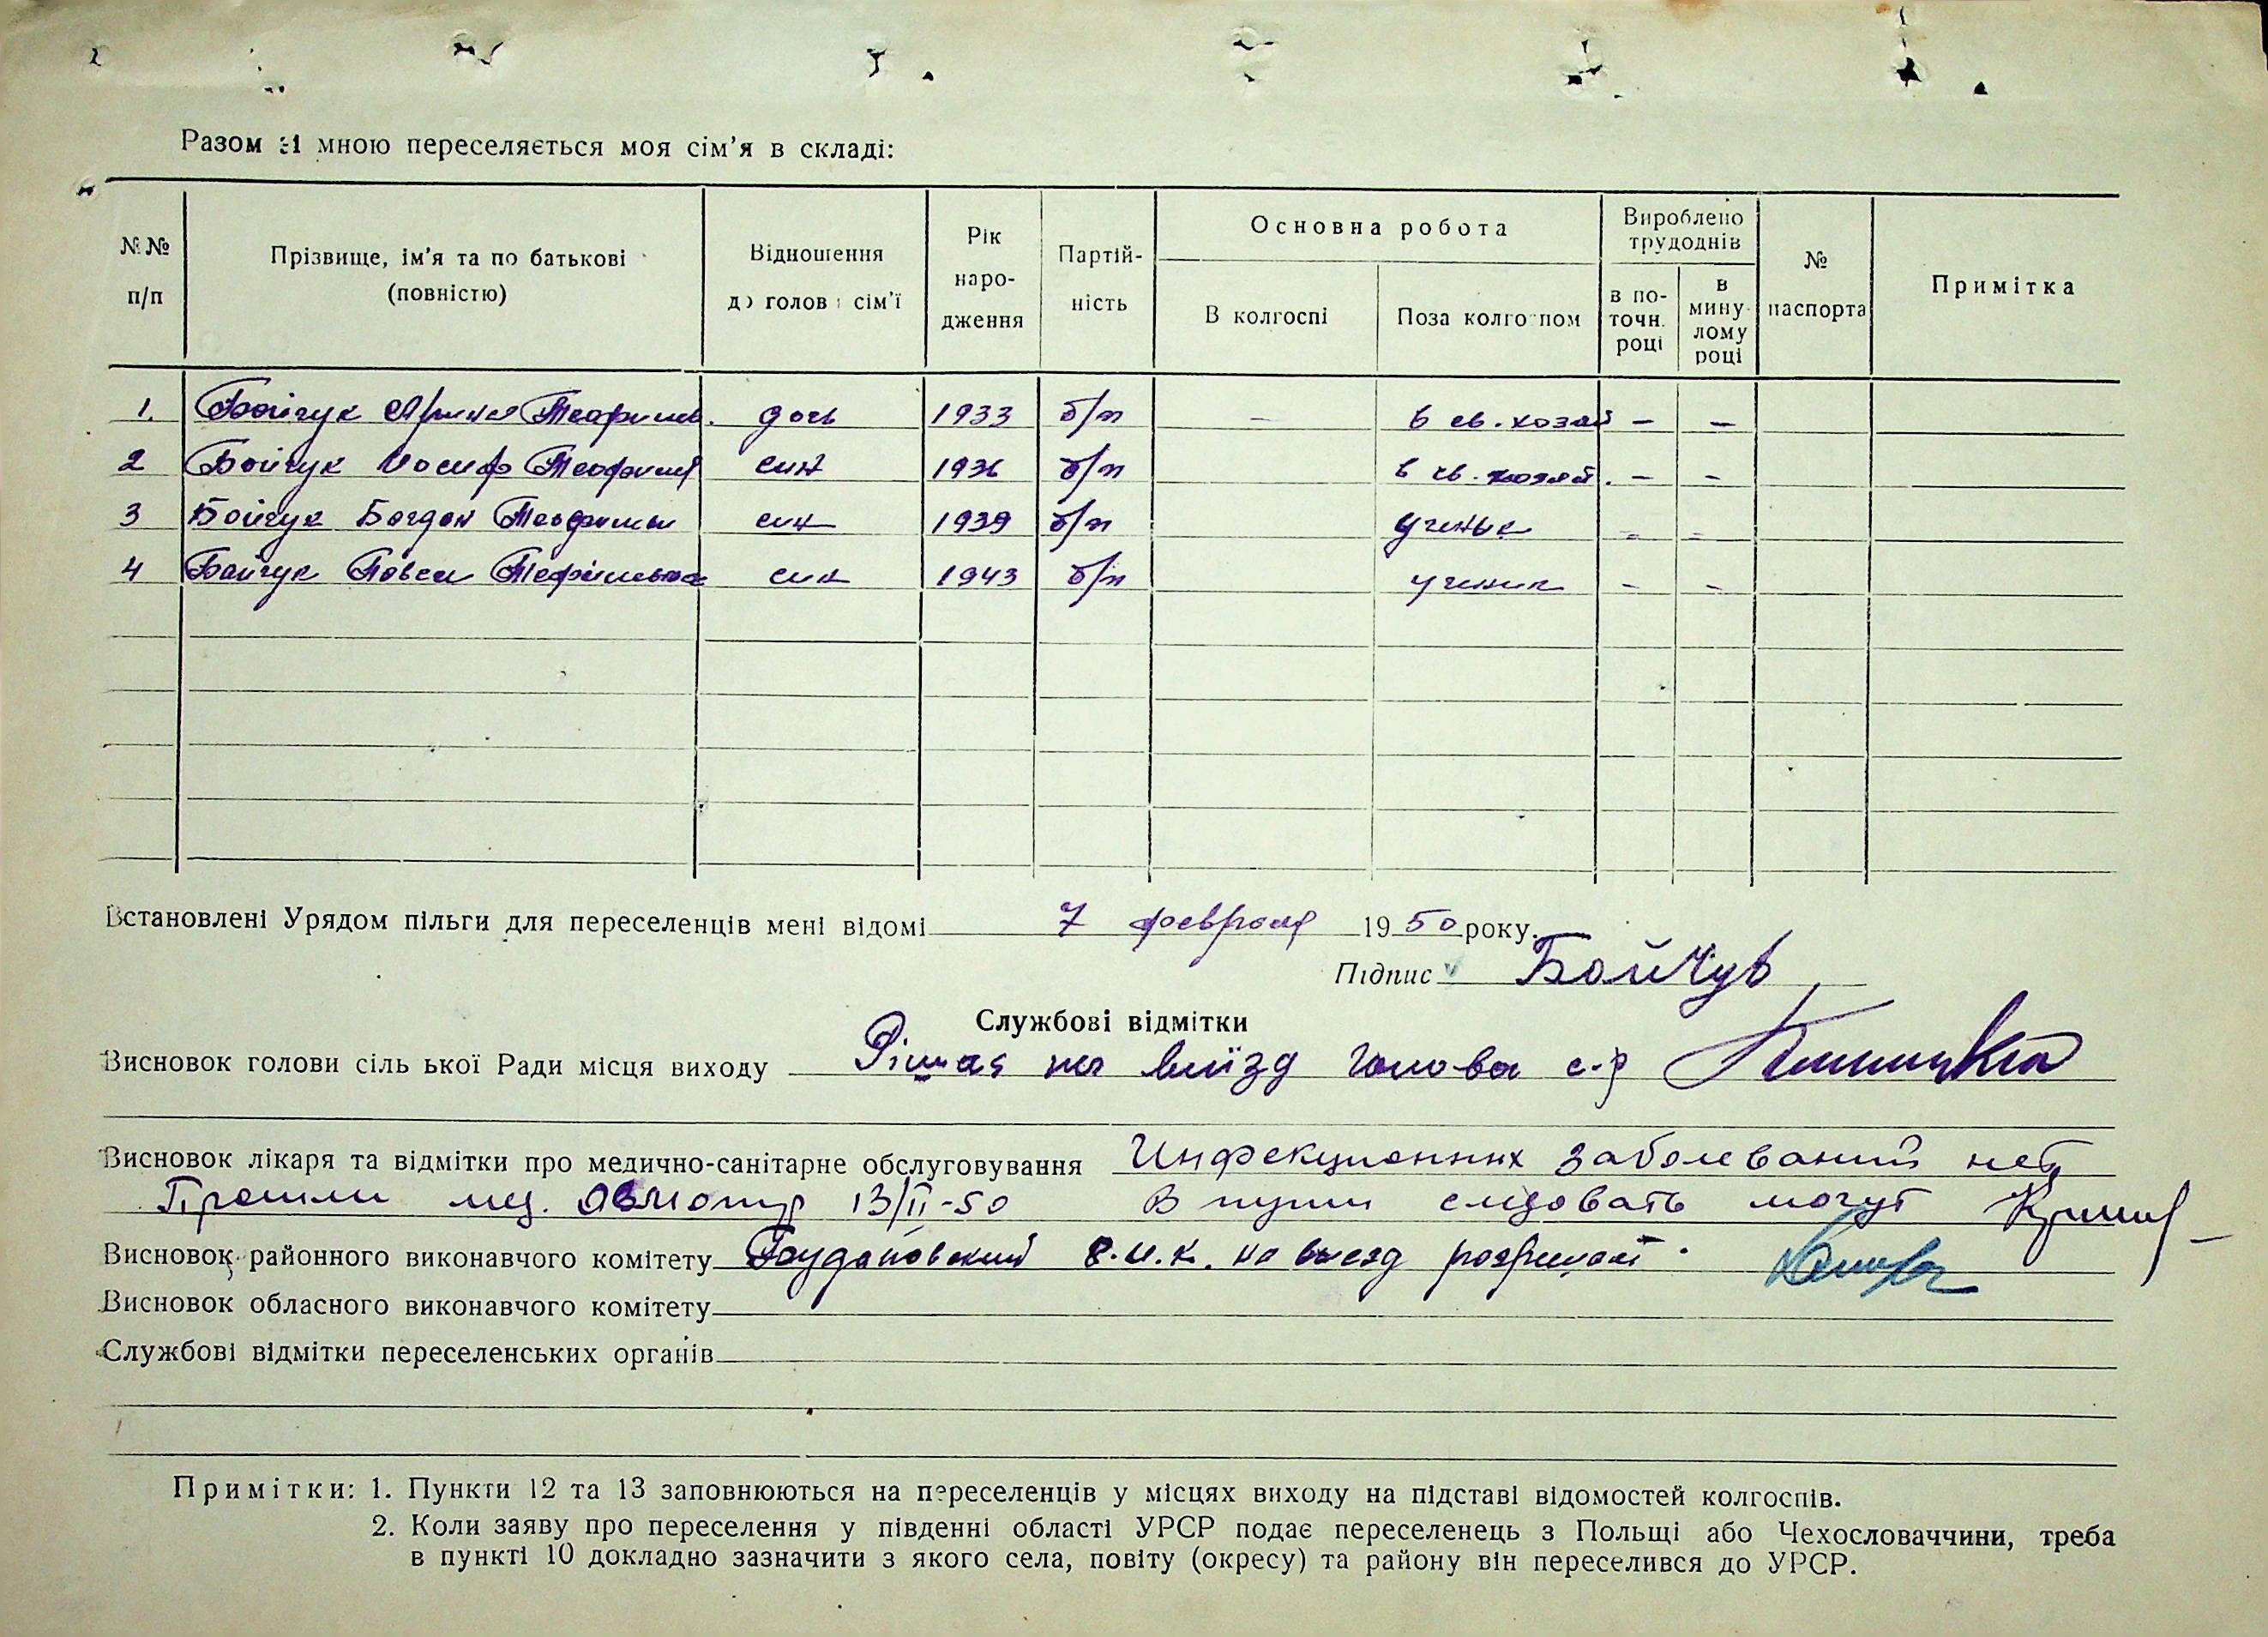 Разом зі мною переселяється моя сім'я в складі:
№№ п/п
Прізвище, ім'я та по батькові (повністю)
Відношення до голови сім'ї
Рік наро- дження
Партій- ність
Основна робота
В колгоспі
Поза колгоспом
Вироблено трудоднів
в по- точн. році
в мину- лому році
№ паспорта
Примітка
1. Бойчук Ярина Теофилів. дочь 1933 б/п – в св. хозяй – –
2 Бойчук Иосиф Теофилів син 1936 б/п в св. хозяй. – –
3 Бойчук Богдан син 1939 б/п ученик – –
4 Бойчук Павел син 1943 б/п ученик – –
Встановлені Урядом пільги для переселенців мені відомі 7 февраля 1950 року.
Підпис Бойчук
Службові відмітки
Висновок голови сільської Ради місця виходу на виїзд голова с.р
Висновок лікаря та відмітки про медично-санітарне обслуговування Инфекционных заболеваний нет
Прошли мед. осмотр 13/II-50 В пути следовать могут
Висновок районного виконавчого комітету Будановский Р.И.К. на выезд
Висновок обласного виконавчого комітету
Службові відмітки переселенських органів
Примітки: 1. Пункти 12 та 13 заповнюються на переселенців у місцях виходу на підставі відомостей колгоспів.
2. Коли заяву про переселення у південні області УРСР подає переселенець з Польщі або Чехословаччини, треба
в пункті 10 докладно зазначити з якого села, повіту (окресу) та району він переселився до УРСР.